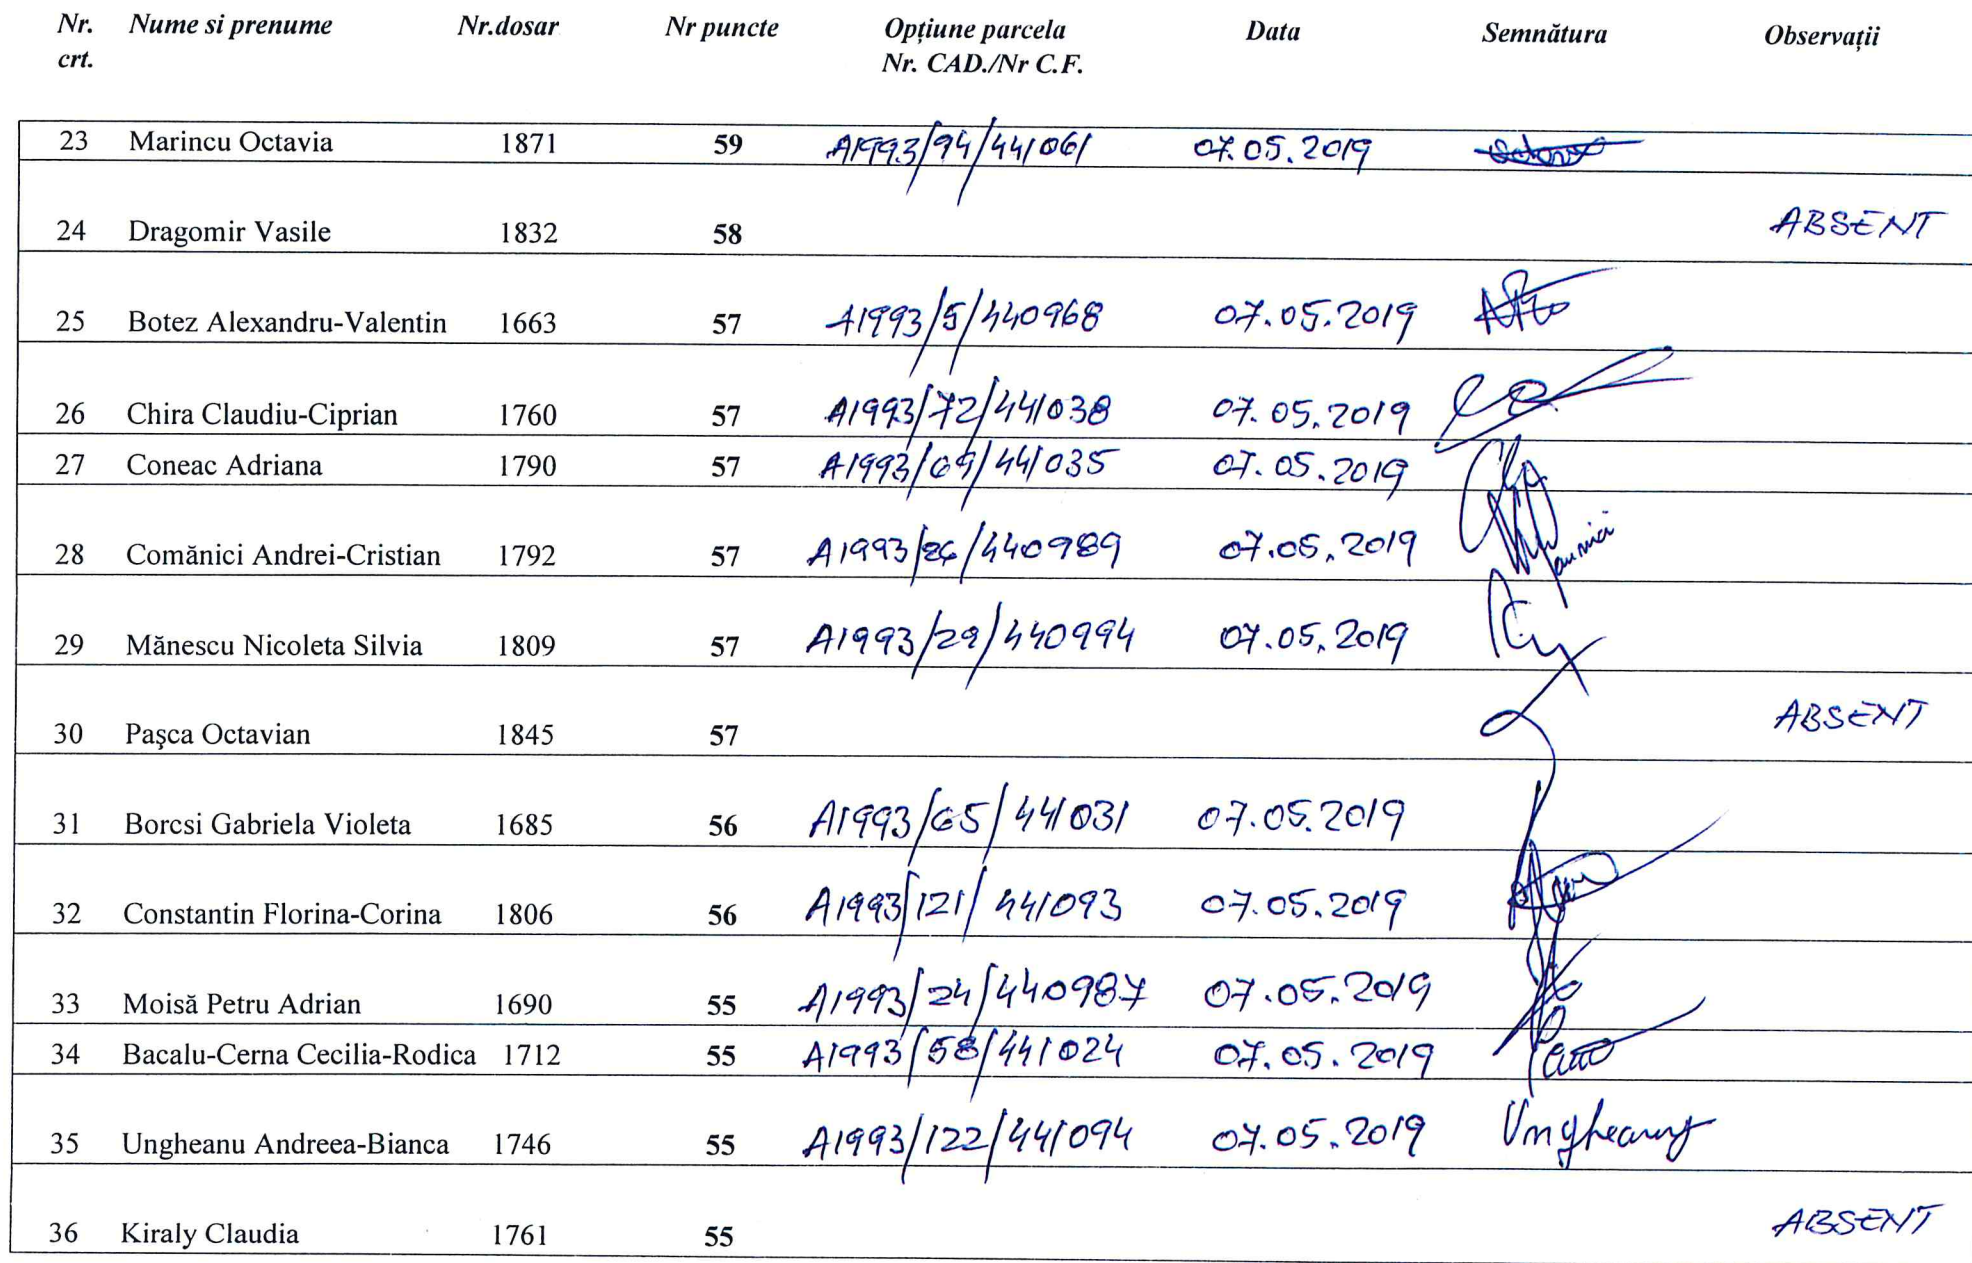 Nr. crt. Nume si prenume Nr.dosar Nr puncte Opțiune parcela Nr. CAD./Nr C.F. Data Semnătura Observații
23 Marincu Octavia 1871 59 A1993/94/441061 07.05.2019
24 Dragomir Vasile 1832 58 ABSENT
25 Botez Alexandru-Valentin 1663 57 A1993/5/440968 07.05.2019
26 Chira Claudiu-Ciprian 1760 57 A1993/72/441038 07.05.2019
27 Coneac Adriana 1790 57 A1993/69/441035 07.05.2019
28 Comănici Andrei-Cristian 1792 57 07.05.2019
29 Mănescu Nicoleta Silvia 1809 57 A1993/29/440994 07.05.2019
30 Paşca Octavian 1845 57 ABSENT
31 Borcsi Gabriela Violeta 1685 56 A1993/65/441031 07.05.2019
32 Constantin Florina-Corina 1806 56 A1993/121/441093 07.05.2019
33 Moisă Petru Adrian 1690 55 A1993/24/440987 07.05.2019
34 Bacalu-Cerna Cecilia-Rodica 1712 55 A1993/58/441024 07.05.2019
35 Ungheanu Andreea-Bianca 1746 55 A1993/122/441094 07.05.2019 Ungheanu
36 Kiraly Claudia 1761 55 ABSENT